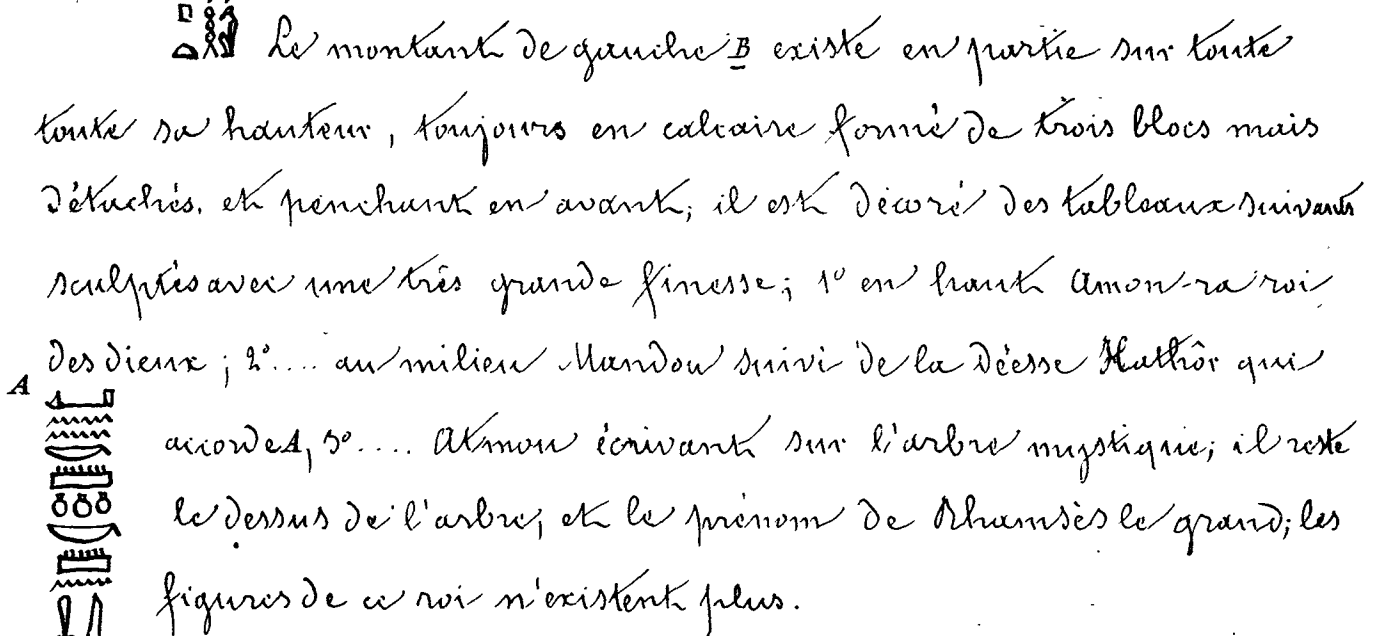 Le montant de gauche B existe en partie sur toute
toute sa hauteur, toujours en calcaire formé de trois blocs mais
détachés. et penchant en avant; il est décoré des tableaux suivants
sculptés avec une très grande finesse; 1º en haut Amon-ra roi
des dieux; 2º.... au milieu Mandou suivi de la Déesse Hathôr qui
A
accorde A, 3º.... Atmou écrivant sur l'arbre mystique; il reste
le dessus de l'arbre, et le prénom de Rhamsès le grand; les
figures de ce roi n'existent plus.